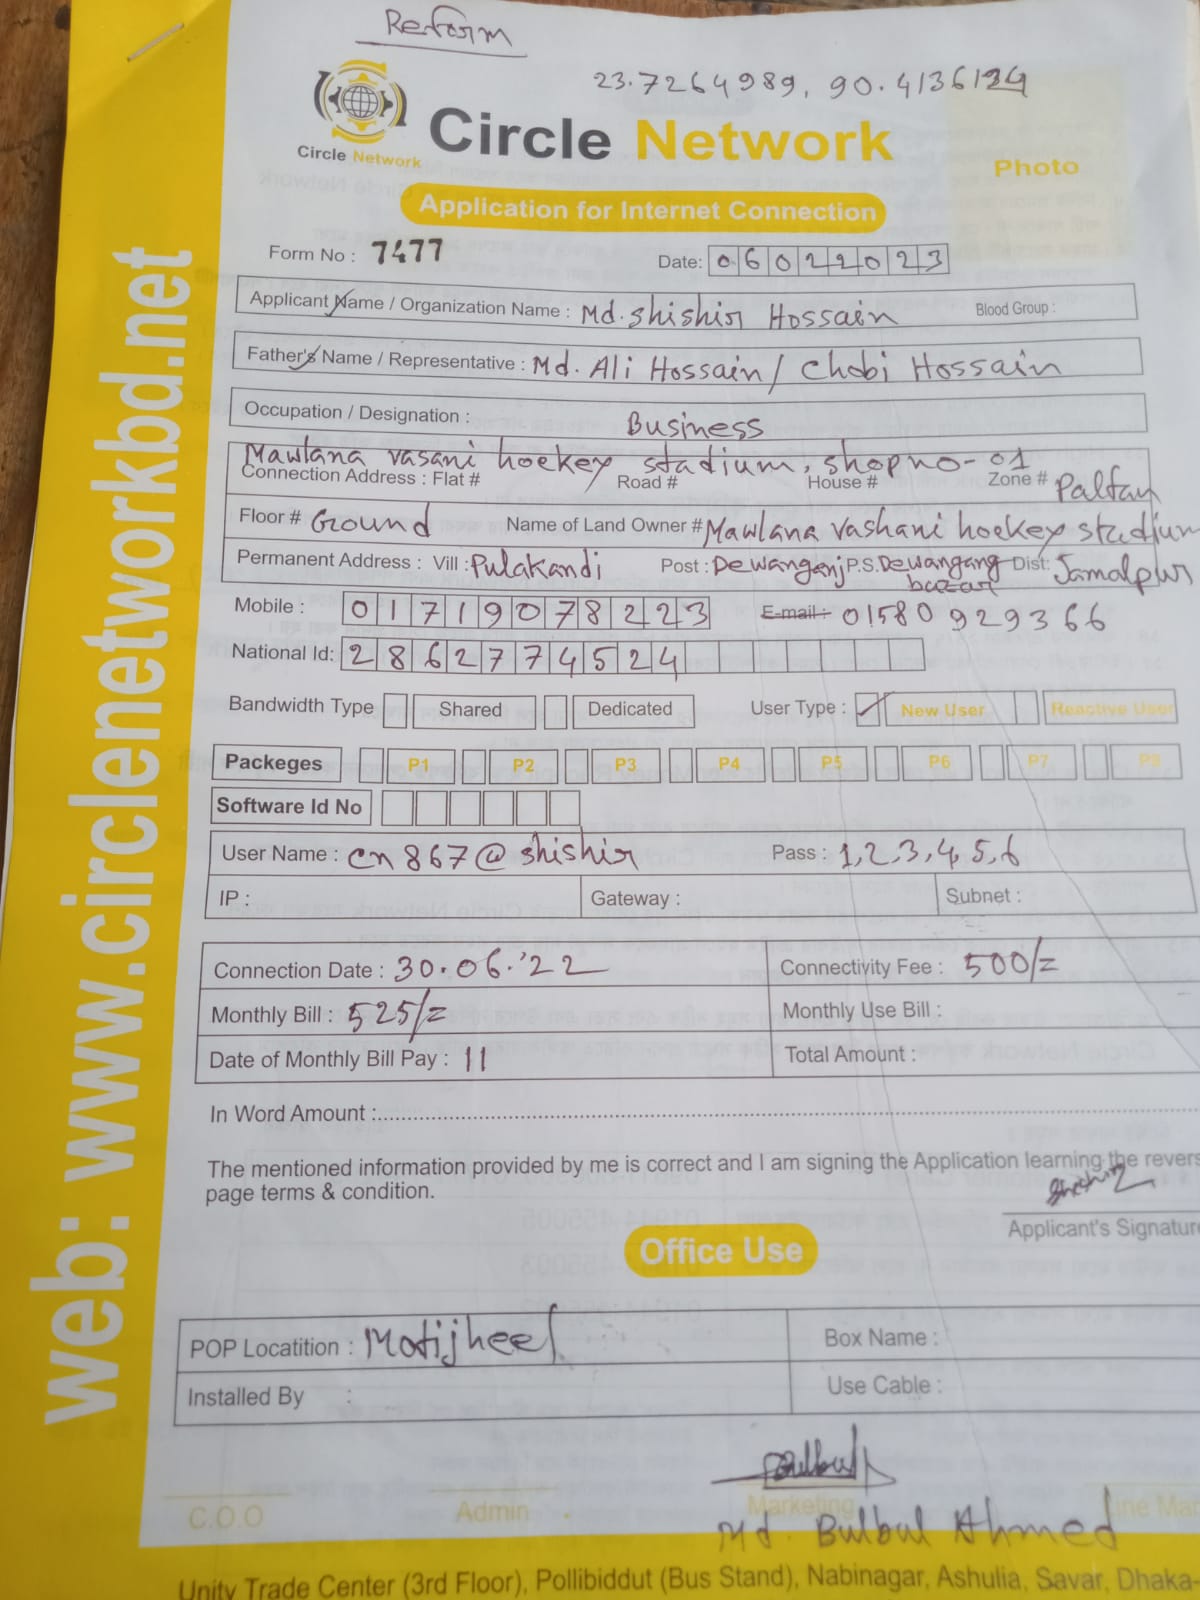 Reform
23.7264989, 90.4136124
Circle Network
Circle Network
Photo
Application for Internet Connection
Form No : 7477
Date: 06022023
Applicant Name / Organization Name : Md. Shishir Hossain Blood Group :
Father's Name / Representative : Md. Ali Hossain / Chobi Hossain
Occupation / Designation : Business
Mawlana vasani hockey stadium, shop no-01
Connection Address : Flat # Road # House # Zone # Paltan
Floor # Ground Name of Land Owner # Mawlana vashani hockey stadium
Permanent Address : Vill : Pulakandi Post : Dewanganj P.S. Dewangang Dist: Jamalpur
bazar
Mobile : 01719078223 E-mail : 01580929366
National Id: 2862774524
Bandwidth Type Shared Dedicated User Type : New User Reactive User
Packeges P1 P2 P3 P4 P5 P6 P7 P8
Software Id No
User Name : cn867@shishir Pass : 1,2,3,4,5,6
IP : Gateway : Subnet :
Connection Date : 30.06.'22 Connectivity Fee : 500/=
Monthly Bill : 525/= Monthly Use Bill :
Date of Monthly Bill Pay : 11 Total Amount :
In Word Amount :
The mentioned information provided by me is correct and I am signing the Application learning the revers
page terms & condition.
Shishir
Applicant's Signature
Office Use
POP Locatition : Motijheel Box Name :
Installed By : Use Cable :
Bulbul
C.O.O Admin Marketing Line Ma
Md. Bulbul Ahmed
Unity Trade Center (3rd Floor), Pollibiddut (Bus Stand), Nabinagar, Ashulia, Savar, Dhaka-
web: www.circlenetworkbd.net